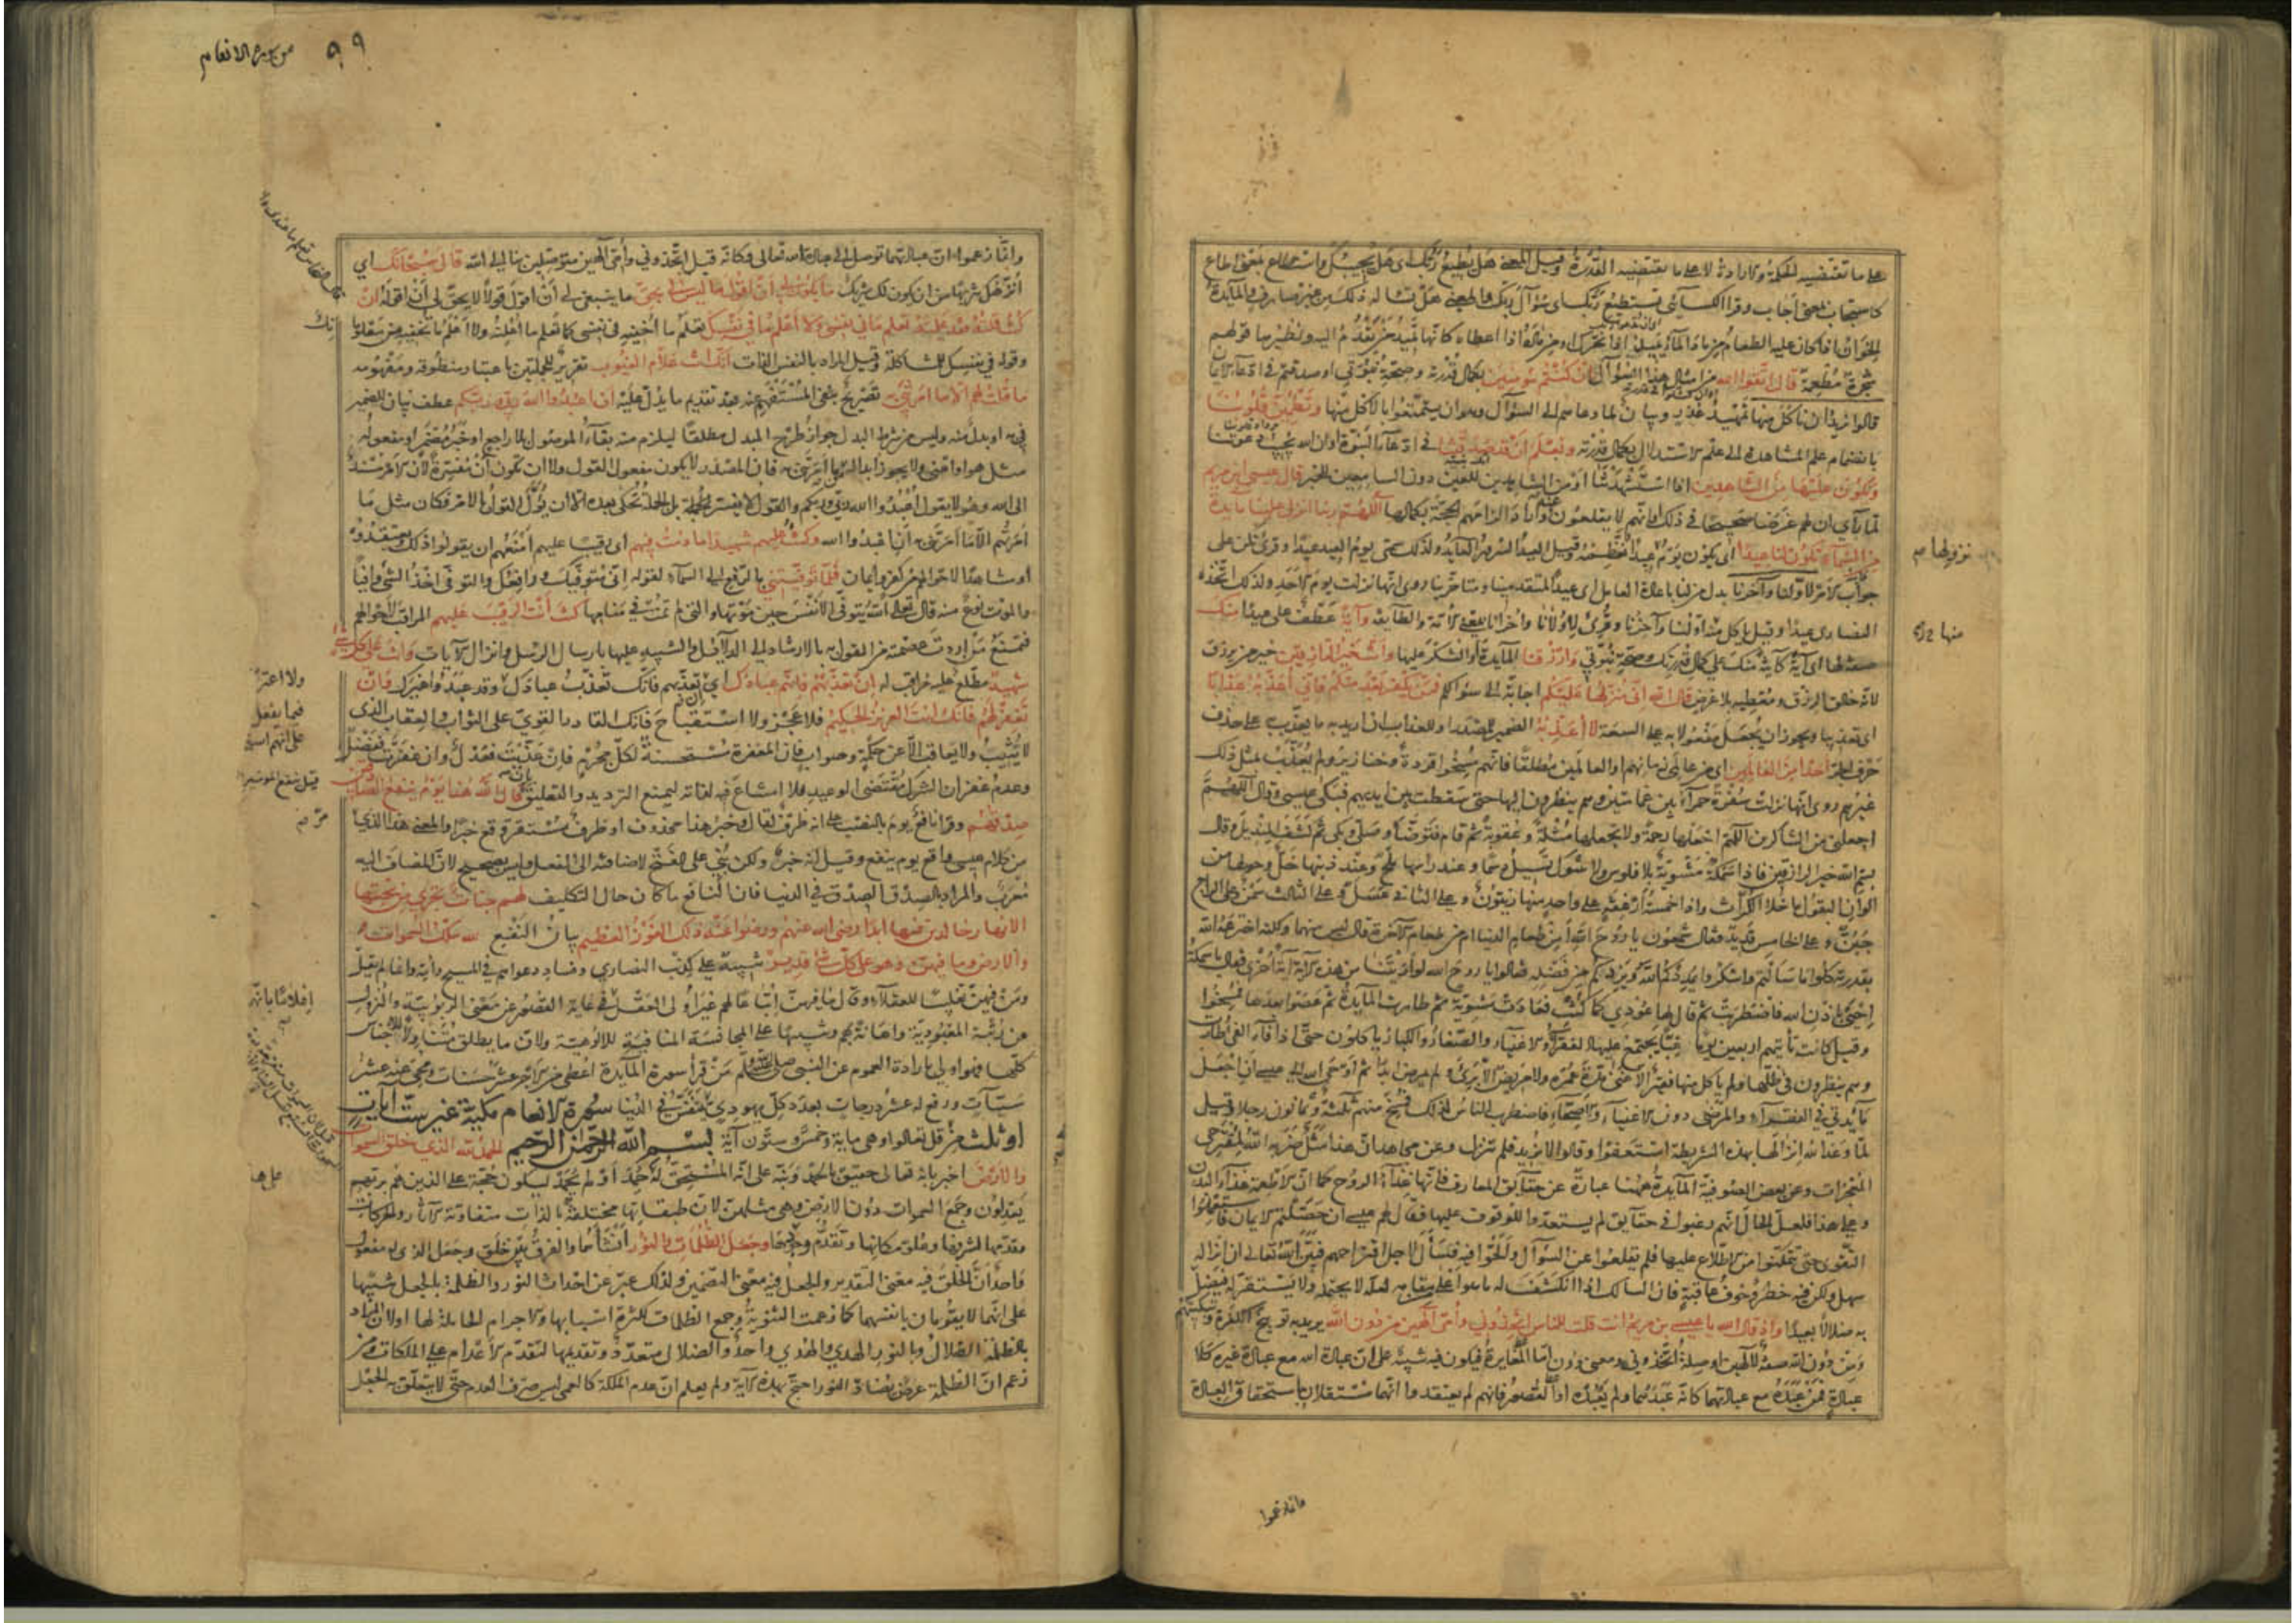 على ما تقتضيه الحكمة والارادة لا على ما تقتضيه القدرة وقيل المعنى هل يطيع ربك اى هل يجيبك واستطاع بمعنى اطاع
كاستجاب بمعنى اجاب وقرا الكسائي تستطيع ربك اى سؤال ربك والمعنى هل تساله ذلك من غير صارف والمايدة
الخوان اذا كان عليه الطعام من ماد الماء يميد اذا تحرك او من ماده اذا اعطاه كانها تميد من تقدم اليه ونظيرها قولهم
شجرة مطعمة قال اتقوا الله من امثال هذا السؤال ان كنتم مؤمنين بكمال قدرته وصحة نبوتي او صدقتم في ادعاء الايمان
قالوا نريد ان ناكل منها تمهيد عذر وبيان لما دعاهم الى السؤال وهو ان يتمتعوا بالاكل منها وتطمئن قلوبنا
بانضمام علم المشاهدة الى علم الاستدلال بكمال قدرته ونعلم ان قد صدقتنا في ادعاء النبوة او ان الله يجيب دعوتنا
ونكون عليها من الشاهدين اذا استشهدتنا او من الشاهدين للعين دون السامعين للخبر قال عيسى ابن مريم
لما رأى ان لهم غرضا صحيحا في ذلك او انهم لا يقلعون عنه واراد الزامهم الحجة بكمالها اللهم ربنا انزل علينا مايدة
من السماء تكون لنا عيدا اى يكون يوم نزولها عيدا نعظمه وقيل العيد السرور العايد ولذلك سمى يوم العيد عيدا وقرئ تكن على
جواب الامر لاولنا وآخرنا بدل من لنا باعادة العامل اى عيدا لمتقدمينا ومتاخرينا روى انها نزلت يوم الاحد ولذلك اتخذه
النصارى عيدا وقيل ياكل منها اولنا وآخرنا وقرئ لاولانا واخرانا بمعنى الامة والطايفة وآية عطف على عيدا منك
صفة لها اى آية كاينة منك على كمال قدرتك وصحة نبوتي وارزقنا المايدة او الشكر عليها وانت خير الرازقين خير من يرزق
لانه خالق الرزق ومعطيه بلا عرض قال الله انى منزلها عليكم اجابة الى سؤالكم فمن يكفر بعد منكم فاني اعذبه عذابا
اى تعذيبا ويجوز ان يجعل مفعولا به على السعة لا اعذبه الضمير للمصدر او للعذاب ان اريد به ما يعذب به على حذف
حرف الجر احدا من العالمين اى من عالمي زمانهم او العالمين مطلقا فانهم مسخوا قردة وخنازير ولم يعذب بمثل ذلك
غيرهم روى انها نزلت سفرة حمراء بين غمامتين وهم ينظرون اليها حتى سقطت بين ايديهم فبكى عيسى وقال اللهم
اجعلني من الشاكرين اللهم اجعلها رحمة ولا تجعلها مثلة وعقوبة ثم قام فتوضأ وصلى وبكى ثم كشف المنديل وقال
بسم الله خير الرازقين فاذا سمكة مشوية بلا فلوس ولا شوك تسيل دسما وعند راسها ملح وعند ذنبها خل وحولها من
الوان البقول ما خلا الكراث واذا خمسة ارغفة على واحد منها زيتون وعلى الثاني عسل وعلى الثالث سمن وعلى الرابع
جبن وعلى الخامس قديد فقال شمعون يا روح الله أمن طعام الدنيا ام من طعام الآخرة قال ليس منهما ولكنه اخترعه الله
بقدرته كلوا ما سالتم واشكروا يمددكم الله ويزدكم من فضله فقالوا يا روح الله لو أريتنا من هذه الآية آية أخرى فقال يا سمكة
احيى باذن الله فاضطربت ثم قال لها عودي كما كنت فعادت مشوية ثم طارت المايدة ثم عصوا بعدها فمسخوا
وقيل كانت تأتيهم اربعين يوما غبا يجتمع عليها الفقراء والاغنياء والصغار والكبار ياكلون حتى اذا فاء الفئ طارت
وهم ينظرون في ظلها ولم ياكل منها فقير الا غنى مدة عمره ولا مريض الا برئ ولم يمرض ابدا ثم اوحى الله الى عيسى ان اجعل
مايدتي في الفقراء والمرضى دون الاغنياء والاصحاء فاضطرب الناس لذلك فمسخ منهم ثلثة وثمانون رجلا وقيل
لما وعد الله انزالها بهذه الشريطة استعفوا وقالوا لا نريد فلم تنزل وعن مجاهد ان هذا مثل ضربه الله لمقترحي
المعجزات وعن بعض الصوفية المايدة ههنا عبارة عن حقايق المعارف فانها غذاء الروح كما ان الاطعمة غذاء البدن
وعلى هذا فلعل الحال انهم رغبوا في حقايق لم يستعدوا للوقوف عليها فقال لهم عيسى ان حصلتم الايمان فاستعملوا
التقوى حتى تتمكنوا من الاطلاع عليها فلم يقلعوا عن السؤال والحوا فيه فسأل لاجل اقتراحهم فبين الله تعالى ان انزاله
سهل ولكن فيه خطر وخوف عاقبة فان السالك اذا انكشف له ما هو اعلى من مقامه لعله لا يحتمله ولا يستقر له فيضل
به ضلالا بعيدا واذ قال الله يا عيسى بن مريم انت قلت للناس اتخذوني وأمى الهين من دون الله يريد به توبيخ الكفرة وتبكيتهم
ومن دون الله صفة لالهين او صلة اتخذوني ومعنى دون اما المغايرة فيكون فيه تنبيه على ان عبادة الله مع عبادة غيره كلا
عبادة فمن عبده مع عبادتهما كانه عبدهما ولم يعبده او القصور فانهم لم يعتقدوا انهما مستقلان باستحقاق العبادة
وانما زعموا
نزولها
منها
٩٩ من سورة الانعام
وانما زعموا ان عبادتهما توصل الى عبادة الله تعالى وكانه قيل اتخذوني وأمي الهين متوصلين بنا الى الله قال سبحانك اي
أنزهك تنزيها من ان يكون لك شريك ما يكون لي ان اقول ما ليس لي بحق ما ينبغي لي أن اقول قولا لا يحق لي أن اقوله ان
كنت قلته فقد علمته تعلم ما في نفسي ولا أعلم ما في نفسك تعلم ما أخفيه في نفسي كما تعلم ما أعلنه ولا أعلم ما تخفيه من معلوماتك
وقوله في نفسك للمشاكلة وقيل المراد بالنفس الذات انك انت علام الغيوب تقرير للجملتين باعتبار منطوقه ومفهومه
ما قلت لهم الا ما امرتني به تصريح بنفي المستفهم عنه بعد تقديم ما يدل عليه ان اعبدوا الله ربي وربكم عطف بيان للضمير
في به او بدل منه وليس من شرط البدل جواز طرح المبدل مطلقا ليلزم منه بقاء الموصول بلا راجع او خبر مضمر او مفعوله
مثل هو او اعنى ولا يجوز ابداله من ما امرتني به فان المصدر لا يكون مفعول القول ولا ان تكون أن مفسرة لان الامر مسند
الى الله وهو لا يقول اعبدوا الله ربي وربكم والقول لا يفسر بل الجملة تحكى بعده الا ان يؤول القول بالامر فكان مثل ما
امرتهم الا ما امرتني به أن اعبدوا الله وكنت عليهم شهيدا ما دمت فيهم أى رقيبا عليهم أمنعهم ان يقولوا ذلك ويعتقدوه
او مشاهدا لاحوالهم من كفر وايمان فلما توفيتني بالرفع الى السماء لقوله انى متوفيك ورافعك والتوفى اخذ الشئ وافيا
والموت نوع منه قال تعالى الله يتوفى الانفس حين موتها والتي لم تمت في منامها كنت أنت الرقيب عليهم المراقب لاحوالهم
فتمنع من اردت عصمته من القول به بالارشاد الى الدلائل والتنبيه عليها بارسال الرسل وانزال الآيات وانت على كل شئ
شهيد مطلع عليه مراقب له ان تعذبهم فانهم عبادك اي ان تعذبهم فانك تعذب عبادك وقد عبدوا غيرك فان
تغفر لهم فانك انت العزيز الحكيم فلا عجز ولا استقباح فانك القادر القوي على الثواب والعقاب الذي
لا يثيب ولا يعاقب الا عن حكمة وصواب فان المغفرة مستحسنة لكل مجرم فان عذبت فعدل وان غفرت ففضل
وعدم غفران الشرك مقتضى الوعيد فلا امتناع فيه لذاته ليمنع الترديد والتعليق بان قال الله هذا يوم ينفع الصادقين
صدقهم وقرا نافع يوم بالنصب على انه ظرف لقال وخبر هذا محذوف او ظرف مستقر وقع خبرا والمعنى هذا الذي
من كلام عيسى واقع يوم ينفع وقيل انه خبر ولكن بني على الفتح لاضافته الى الفعل وليس بصحيح لان المضاف اليه
معرب والمراد بالصدق الصدق في الدنيا فان النافع ما كان حال التكليف لهم جنات تجرى من تحتها
الانهار خالدين فيها ابدا رضى الله عنهم ورضوا عنه ذلك الفوز العظيم بيان النفع لله ملك السموات
والارض وما فيهن وهو على كل شئ قدير تنبيه على كذب النصارى وفساد دعواهم في المسيح وأمه وانما لم يقل
ومن فيهن تغليبا للعقلاء وقال ما فيهن اتباعا لهم غير أولى العقل في غاية القصور عن معنى الربوبية والنزول
عن رتبة المعبودية واهانة بهم وتنبيها على المجانسة المنافية للالوهية ولان ما يطلق متناولا للاجناس
كلها فهو اولى بارادة العموم عن النبي صلى الله عليه وسلم من قرأ سورة المائدة اعطى من الاجر عشر حسنات ومحى عنه عشر
سيآت ورفع له عشر درجات بعدد كل يهودي ونصراني يتنفس في الدنيا سورة الانعام مكية غير ست آيات
او ثلث من قل تعالوا وهي ماية وخمس وستون آية بسم الله الرحمن الرحيم الحمد لله الذي خلق السموات
والارض اخبر بانه تعالى حقيق بالحمد ونبه على انه المستحق له حمد او لم يحمد ليكون حجة على الذين هم بربهم
يعدلون وجمع السموات دون الارض وهي مثلهن لان طبقاتها مختلفة بالذات متفاوتة الآثار والحركات
وقدمها لشرفها وعلو مكانها وتقدم وجودها وجعل الظلمات والنور أنشأهما والفرق بين خلق وجعل الذي له مفعول
واحد ان الخلق فيه معنى التقدير والجعل فيه معنى التضمين ولذلك عبر عن احداث النور والظلمة بالجعل تنبيها
على انهما لا يقومان بانفسهما كما زعمت الثنوية وجمع الظلمات لكثرة اسبابها والاجرام الحاملة لها او لان المراد
بالظلمة الضلال وبالنور الهدى والهدى واحد والضلال متعدد وتقديمها لتقدم الاعدام على الملكات ومن
زعم ان الظلمة عرض يضاد النور احتج بهذه الآية ولم يعلم ان عدم الملكة كالعمى ليس صرف العدم حتى لا يتعلق به الجعل